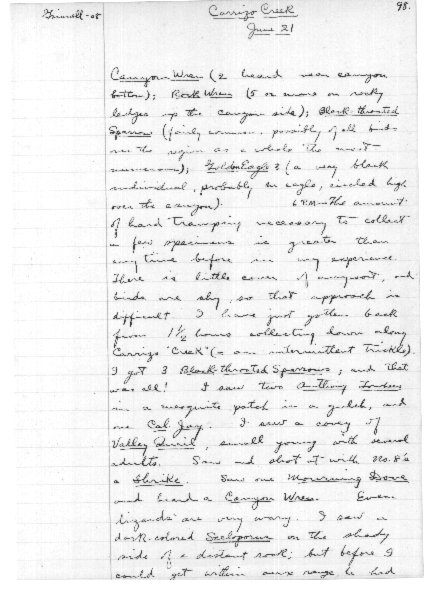 Grinnell-08
Carrizo Creek
98.
June 21
Canyon Wren (2 heard near canyon
bottom); Rock Wren (5 or more on rocky
ledges up the canyon side); Black-throated
Sparrow (fairly common, possibly of all birds
in the region as a whole the most
numerous); Golden Eagle? (a very black
individual, probably an eagle, circled high
over the canyon). 6 P.M.—The amount
of hard tramping necessary to collect
a few specimens is greater than
any time before in my experience.
There is little cover of any sort, and
birds are shy, so that approach is
difficult. I have just gotten back
from 1½ hours collecting down along
Carrizo "Creek" (= an intermittent trickle).
I got 3 Black-throated Sparrows; and that
was all! I saw two Anthony Towhees
in a mesquite patch in a gulch, and
one Cal. Jay. I saw a covey of
Valley Quail, small young with several
adults. Saw and shot at with No. 8's
a Shrike. Saw one Mourning Dove
and heard a Canyon Wren. Even
lizards are very wary. I saw a
dark-colored Sceloporus on the shady
side of a distant rock; but before I
could get within aux range he had